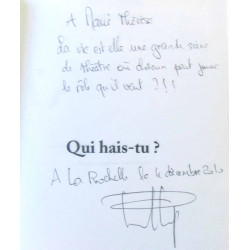 A Marie Thérèse
La vie est elle une grande scène
de théâtre où chacun peut jouer
le rôle qu'il veut ?!!
Qui hais-tu ?
A La Rochelle le 4 décembre 2010